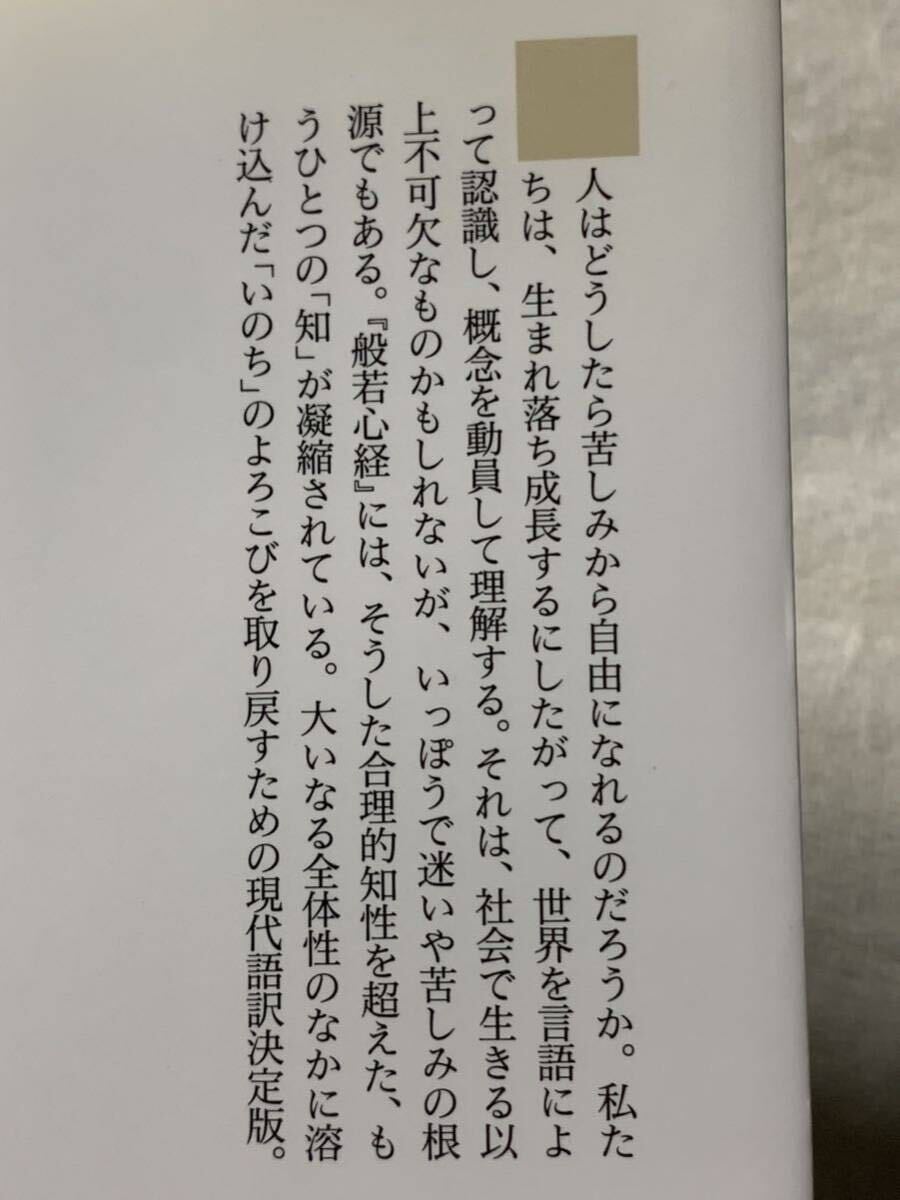 人はどうしたら苦しみから自由になれるのだろうか。私た
ちは、生まれ落ち成長するにしたがって、世界を言語によ
って認識し、概念を動員して理解する。それは、社会で生きる以
上不可欠なものかもしれないが、いっぽうで迷いや苦しみの根
源でもある。『般若心経』には、そうした合理的知性を超えた、も
うひとつの「知」が凝縮されている。大いなる全体性のなかに溶
け込んだ「いのち」のよろこびを取り戻すための現代語訳決定版。